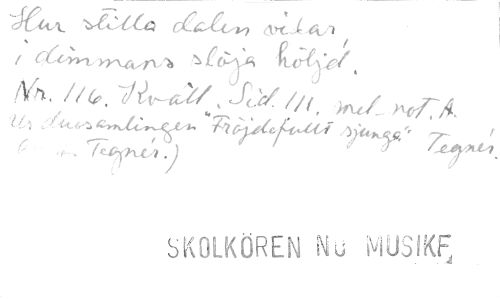 Hur stilla dalen vilar,
i dimmans slöja höljd.
Nr. 116. Kväll. Sid. 111. mel. not. A.
Ur duosamlingen "Fröjdefullt sjunga" Tegnér.
Tegnér.)
SKOLKÖREN NO MUSIKF